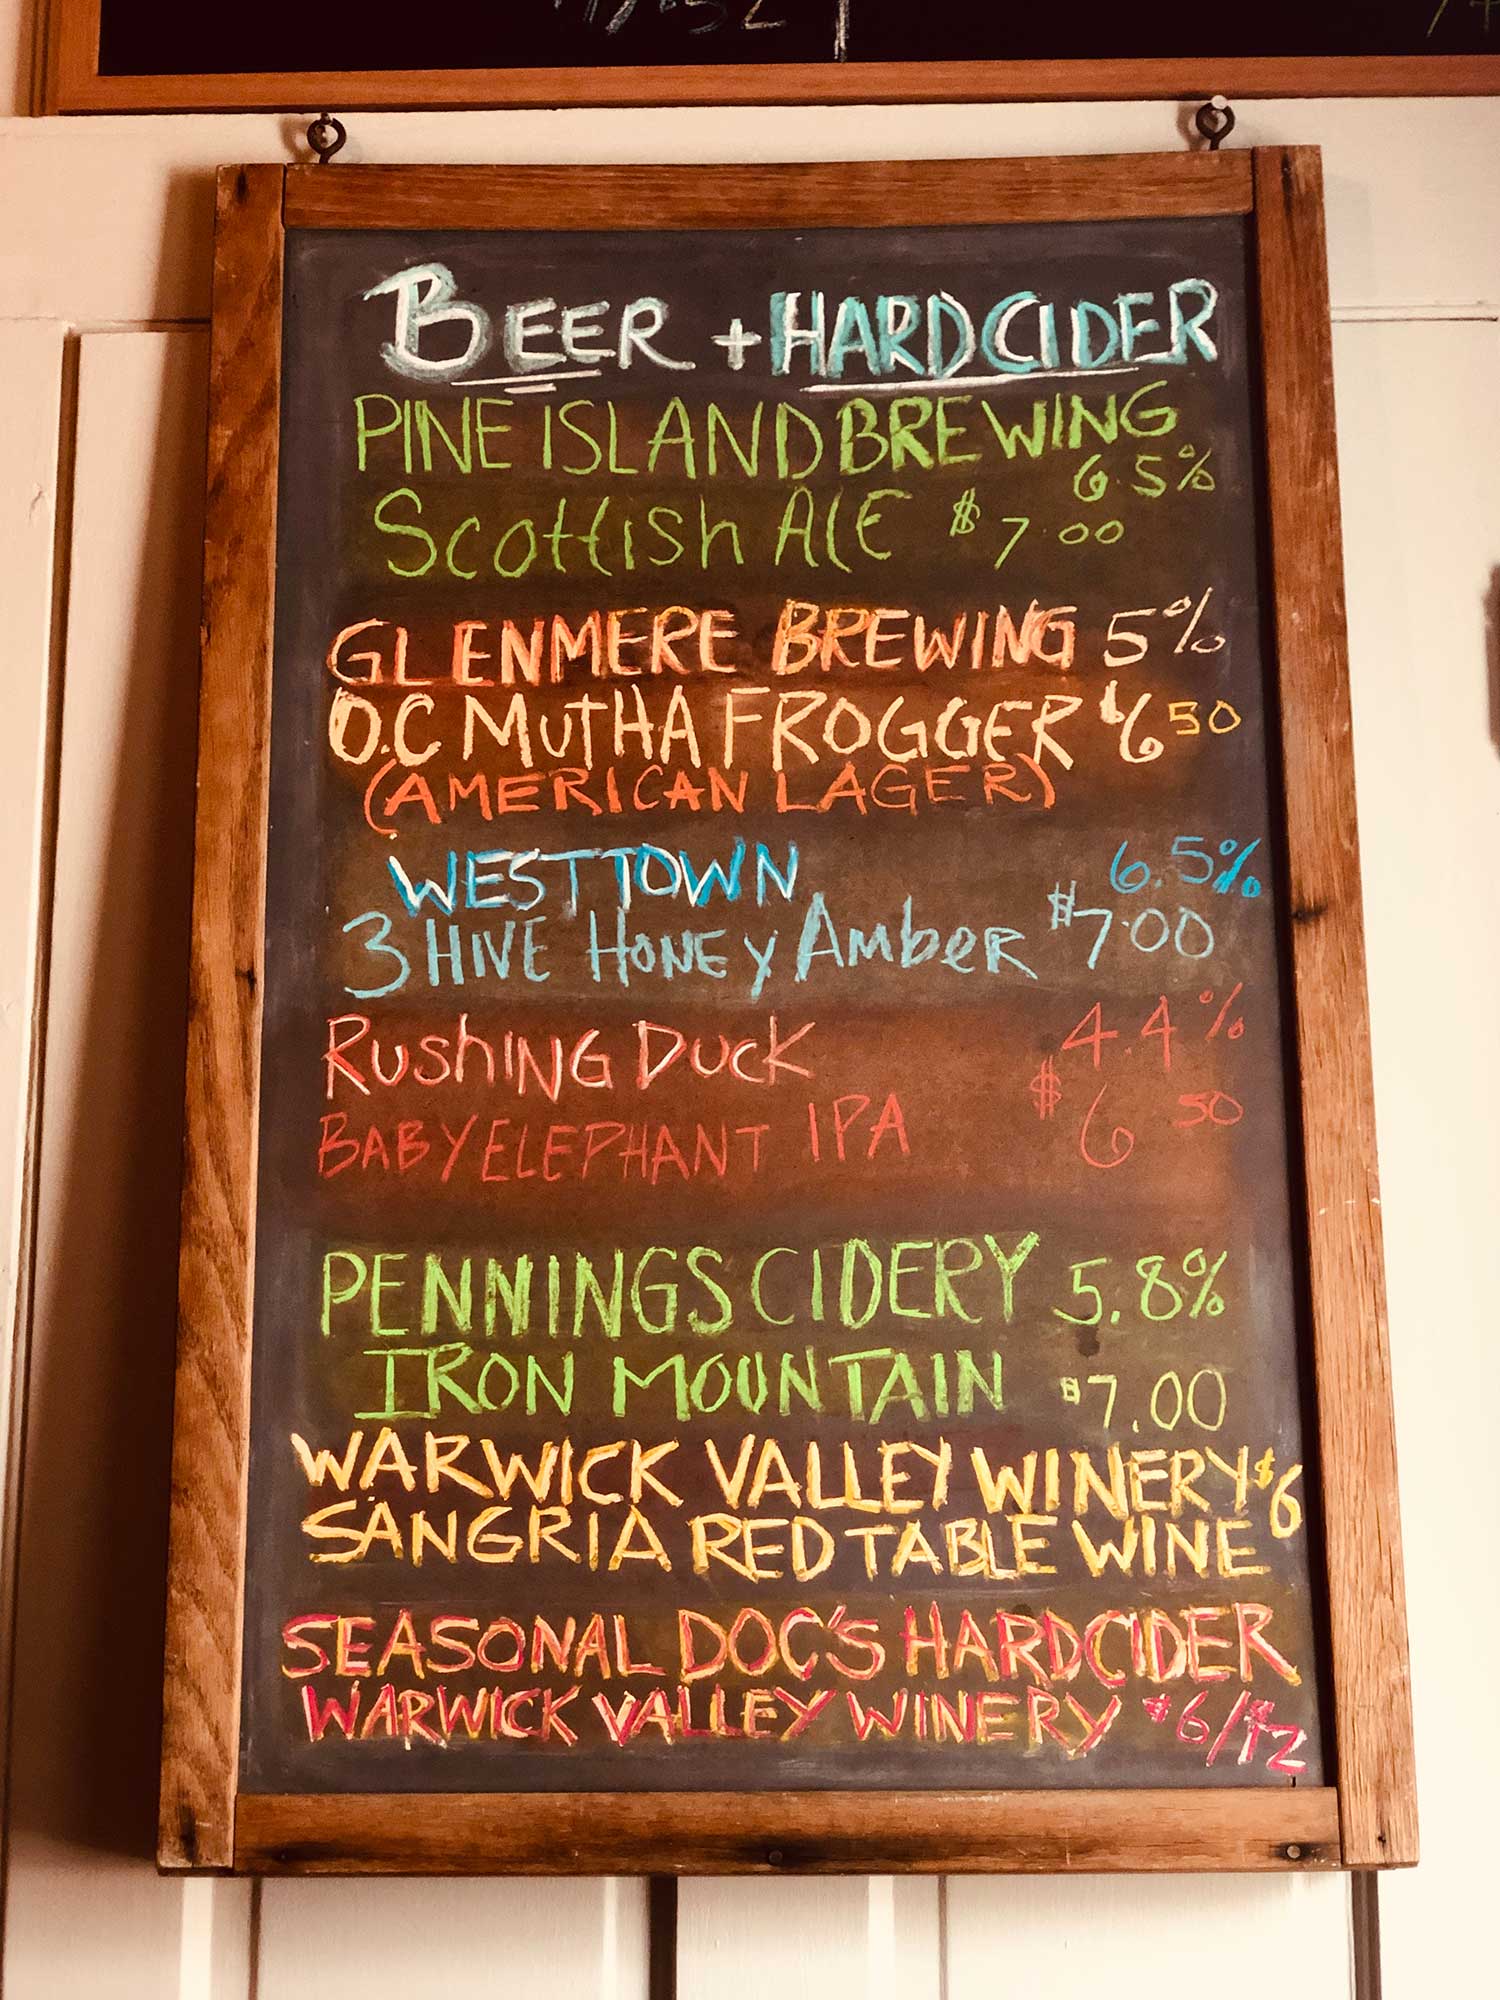 BEER + HARD CIDER
PINE ISLAND BREWING
6.5%
Scottish ALE $7.00
GLENMERE BREWING 5%
O.C MUTHA FROGGER $6 50
(AMERICAN LAGER)
WESTTOWN 6.5%
3 HIVE HONEY AMBER $7.00
RUSHING DUCK 4.4%
BABY ELEPHANT IPA $6 50
PENNINGS CIDERY 5.8%
IRON MOUNTAIN $7.00
WARWICK VALLEY WINERY $6
SANGRIA RED TABLE WINE
SEASONAL DOC'S HARD CIDER
WARWICK VALLEY WINERY $6/$12